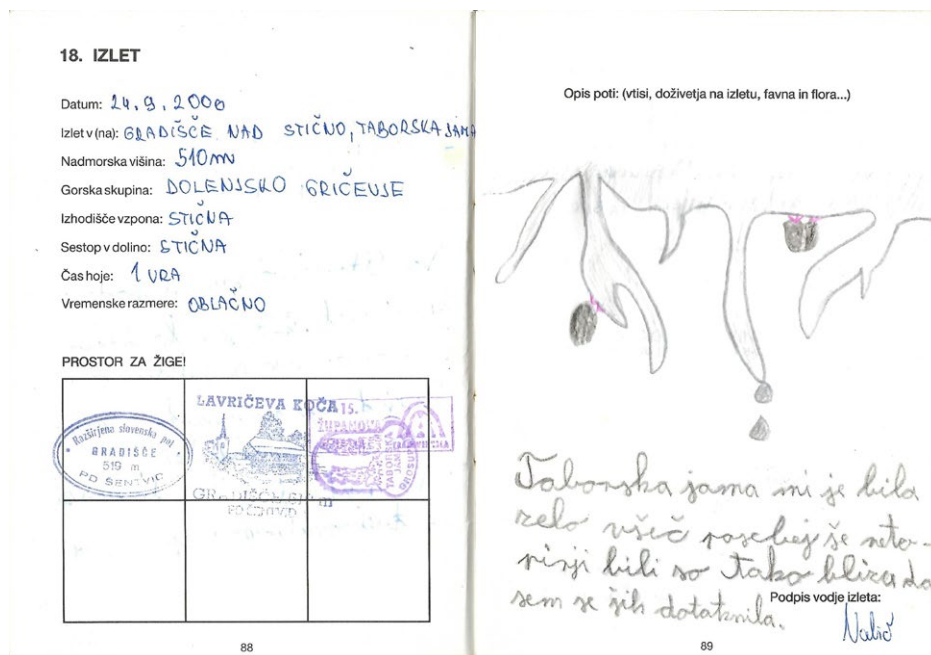 18. IZLET
Datum: 24. 9. 2000
Izlet v (na): GRADIŠČE NAD STIČNO, TABORSKA JAMA
Nadmorska višina: 510m
Gorska skupina: DOLENJSKO GRIČEVJE
Izhodišče vzpona: STIČNA
Sestop v dolino: STIČNA
Čas hoje: 1 URA
Vremenske razmere: OBLAČNO
PROSTOR ZA ŽIGE!
Razširjena slovenska pot
GRADIŠČE
519 m
PD ŠENTVID
LAVRIČEVA KOČA
GRADIŠČE
PD ŠENTVID
15.
ŽUPANOVA
JAMA
TABORSKA
JAMA
GROSUPLJE
88
Opis poti: (vtisi, doživetja na izletu, favna in flora...)
Taborska jama mi je bila
zelo všeč posebej še neto-
pirji bili so tako blizu da
sem se jih dotaknila.
Podpis vodje izleta:
89